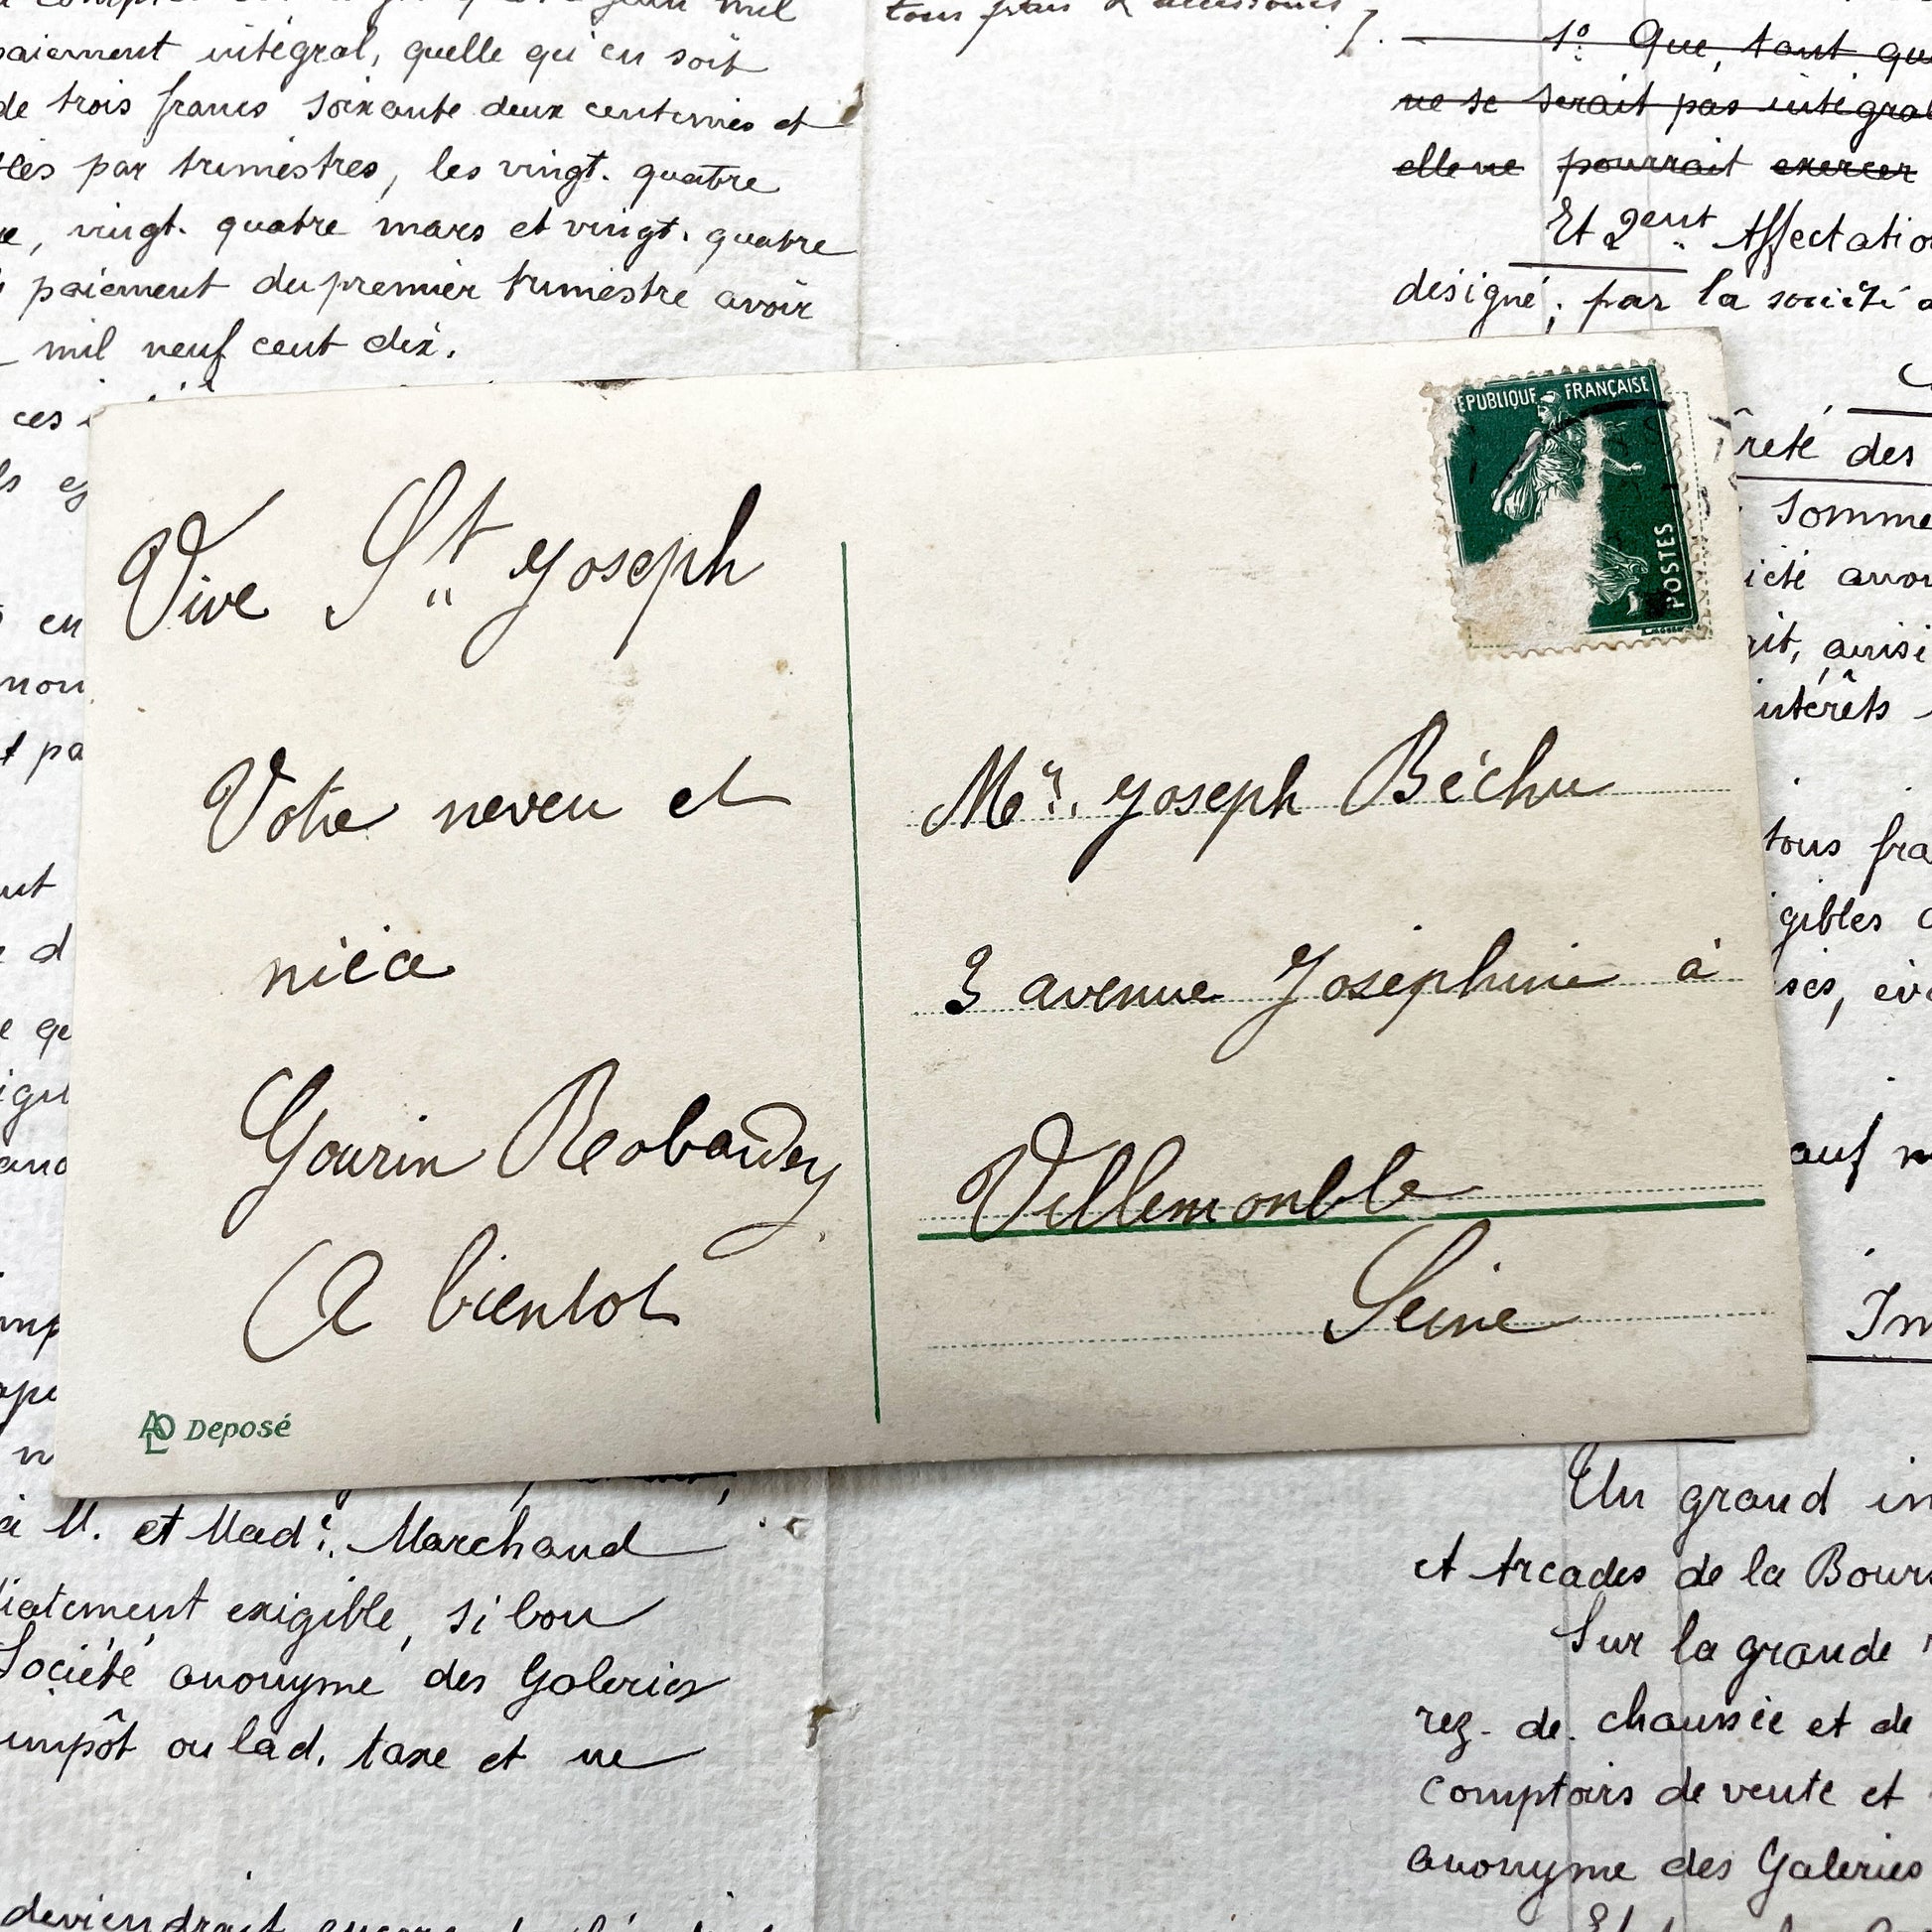 tous frais & accessoires
paiement intégral, quelle qu'en soit
de trois francs soixante deux centimes et
par trimestres, les vingt. quatre
vingt. quatre mars et vingt. quatre
paiement du premier trimestre avoir
mil neuf cent dix.
ces
1º Que, tant que
ne se serait pas intégral
elle ne pourrait exercer
Et 2ent Affectation
désigné; par la société
reté des
somme
tous fra
gibles
auf
RÉPUBLIQUE FRANÇAISE
POSTES
Vive St Joseph
Votre neveu et
nièce
Gourin Robaudey
A bientot
AL Deposé
Mr. Joseph Béchu
3 avenue Joséphine à
Villemonble
Seine
à M. et Made. Marchand
iatement exigible, si bon
Société anonyme des Galeries
impôt ou lad. taxe et ne
deviendrait encore
Un grand im
et Arcades de la Bours
Sur la grande
rez-de-chaussée et de
comptoirs de vente et
anonyme des Galeries